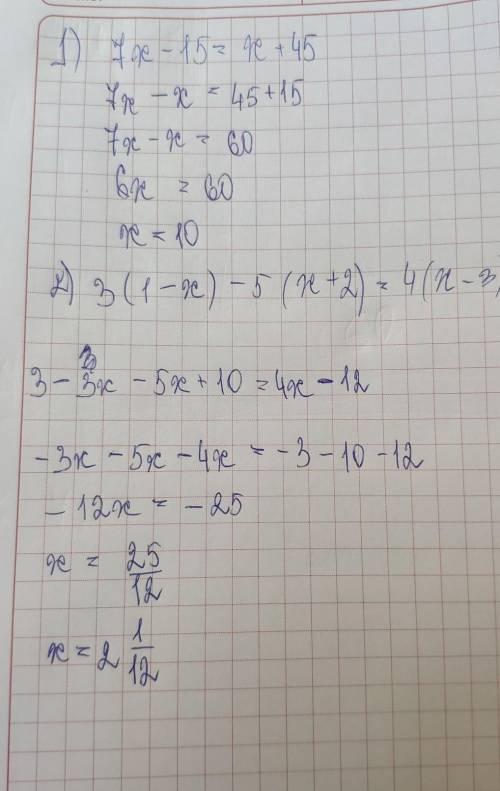 1) 7x - 15 = x + 45
7x - x = 45 + 15
7x - x = 60
6x = 60
x = 10
2) 3(1 - x) - 5(x + 2) = 4(x - 3)
3 - 3x - 5x + 10 = 4x - 12
-3x - 5x - 4x = -3 - 10 - 12
- 12x = - 25
x = 25/12
x = 2 1/12